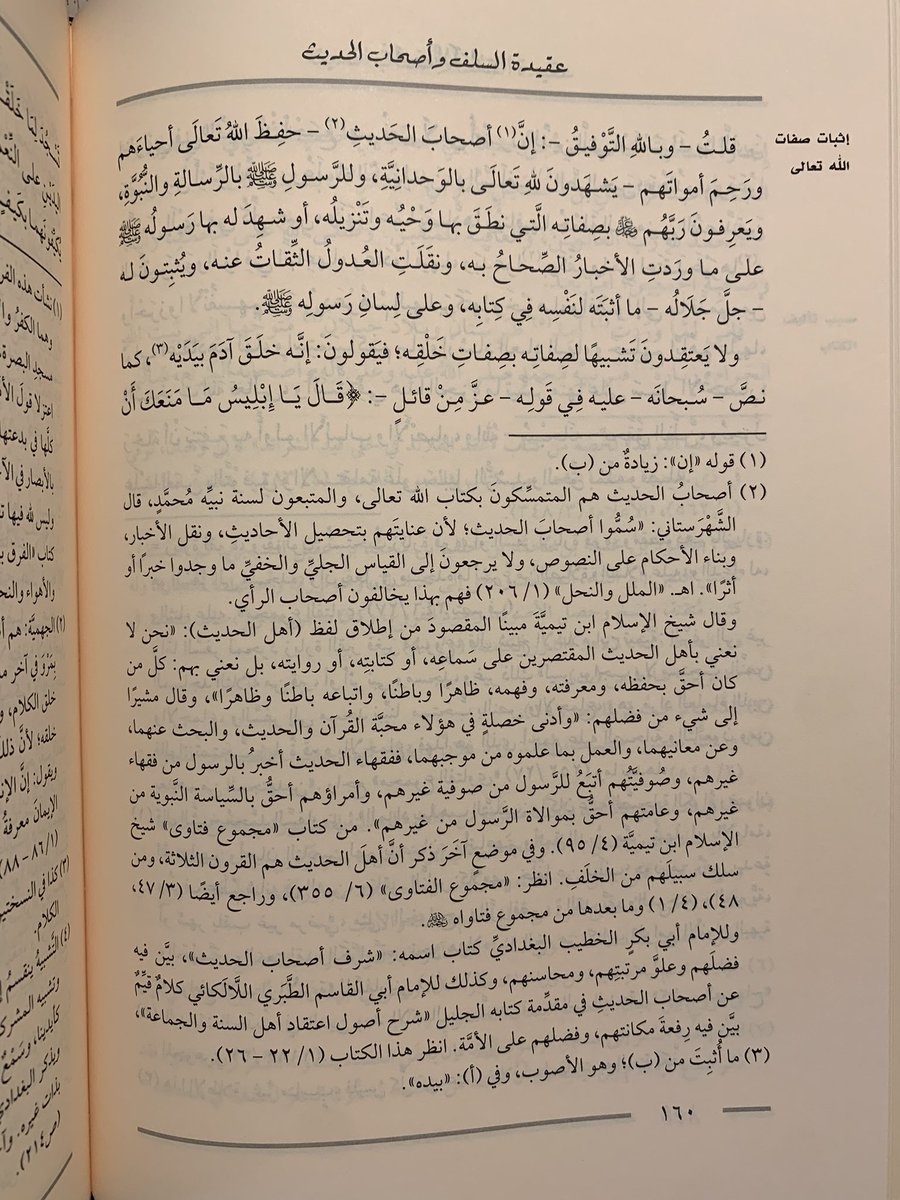 عقيدة السلف وأصحاب الحديث
إثبات صفات
الله تعالى
قلتُ – وباللهِ التَّوْفيقُ –: إنَّ(١) أصحابَ الحَديثِ(٢) – حفِظَ اللهُ تَعالَى أحياءَهم
ورَحِمَ أمواتَهم – يَشهَدونَ للهِ تَعالَى بالوَحدانِيَّةِ، وللرَّسولِ ﷺ بالرِّسالةِ والنُّبُوَّةِ،
ويَعرِفونَ رَبَّهُم ﷻ بصِفاتِه الَّتي نطَقَ بها وَحْيُه وتَنْزيلُه، أو شهِدَ له بها رَسولُه ﷺ
على ما ورَدتِ الأخبارُ الصِّحاحُ به، ونقَلَتِ العُدولُ الثِّقاتُ عنه، ويُثبِتونَ له
– جلَّ جَلَالُه – ما أثبَتَه لنَفْسِه فِي كِتابِه، وعلى لِسانِ رَسولِه ﷺ.
ولا يَعتقِدونَ تَشبيهًا لصِفاتِه بصِفاتِ خَلْقِه؛ فيَقولونَ: إنَّه خلَقَ آدَمَ بيَدَيْه(٣)، كما
نصَّ – سُبحانَه – عليه فِي قَولِه – عزَّ مِنْ قائلٍ –: ﴿قَالَ يَا إِبْلِيسُ مَا مَنَعَكَ أَنْ
(١) قوله «إن»: زيادةٌ من (ب).
(٢) أصحابُ الحديث هم المتمسِّكونَ بكتاب الله تعالى، والمتبعون لسنة نبيِّه مُحمَّدٍ، قال
الشَّهْرَستاني: «سُمُّوا أصحابَ الحديث؛ لأن عنايتَهم بتحصيل الأحاديثِ، ونقل الأخبار،
وبناء الأحكام على النصوص، ولا يرجعونَ إلى القياس الجليِّ والخفيِّ ما وجدوا خبرًا أو
أثرًا». اهـ. «الملل والنحل» (١/ ٢٠٦) فهم بهذا يخالفون أصحاب الرأي.
وقال شيخ الإسلام ابن تيميَّةَ مبينًا المقصودَ من إطلاق لفظ (أهل الحديث): «نحن لا
نعني بأهل الحديث المقتصرين على سَماعِه، أو كتابتِه، أو روايته، بل نعني بهم: كلَّ من
كان أحقَّ بحفظه، ومعرفته، وفهمه، ظاهرًا وباطنًا، واتباعه باطنًا وظاهرًا»، وقال مشيرًا
إلى شيء من فضلهم: «وأدنى خصلةٍ في هؤلاء محبَّة القُرآن والحديث، والبحث عنهما،
وعن معانيهما، والعمل بما علموه من موجبهما، ففقهاء الحديث أخبرُ بالرسول من فقهاء
غيرهم، وصُوفيَّتُهم أتبَعُ للرَّسول من صوفية غيرهم، وأمراؤهم أحقُّ بالسِّياسة النَّبوية من
غيرهم، وعامتهم أحقُّ بموالاة الرَّسول من غيرهم». من كتاب «مجموع فتاوى» شيخ
الإسلام ابن تيميَّة (٤/ ٩٥). وفي موضعٍ آخَرَ ذكر أنَّ أهلَ الحديث هم القرون الثلاثة، ومن
سلك سبيلَهم من الخلَفِ. انظر: «مجموع الفتاوى» (٦/ ٣٥٥)، وراجع أيضًا (٣/ ٤٧،
٤٨)، (٤/ ١) وما بعدها من مجموع فتاواه ﵀.
وللإمام أبي بكرٍ الخطيب البغداديِّ كتاب اسمه: «شرف أصحاب الحديث»، بيَّن فيه
فضلَهم وعلوَّ مرتبتِهم، ومحاسنهم، وكذلك للإمام أبي القاسم الطَّبَري اللَّالَكائي كلامٌ قيِّمٌ
عن أصحاب الحديثِ في مقدِّمة كتابه الجليل «شرح أصول اعتقاد أهل السنة والجماعة»،
بيَّن فيه رِفعةَ مكانتهم، وفضلهم على الأمَّة. انظر هذا الكتاب (١/ ٢٢ – ٢٦).
(٣) ما أُثبِتَ من (ب)؛ وهو الأصوب، وفي (أ): «بيده».
١٦٠